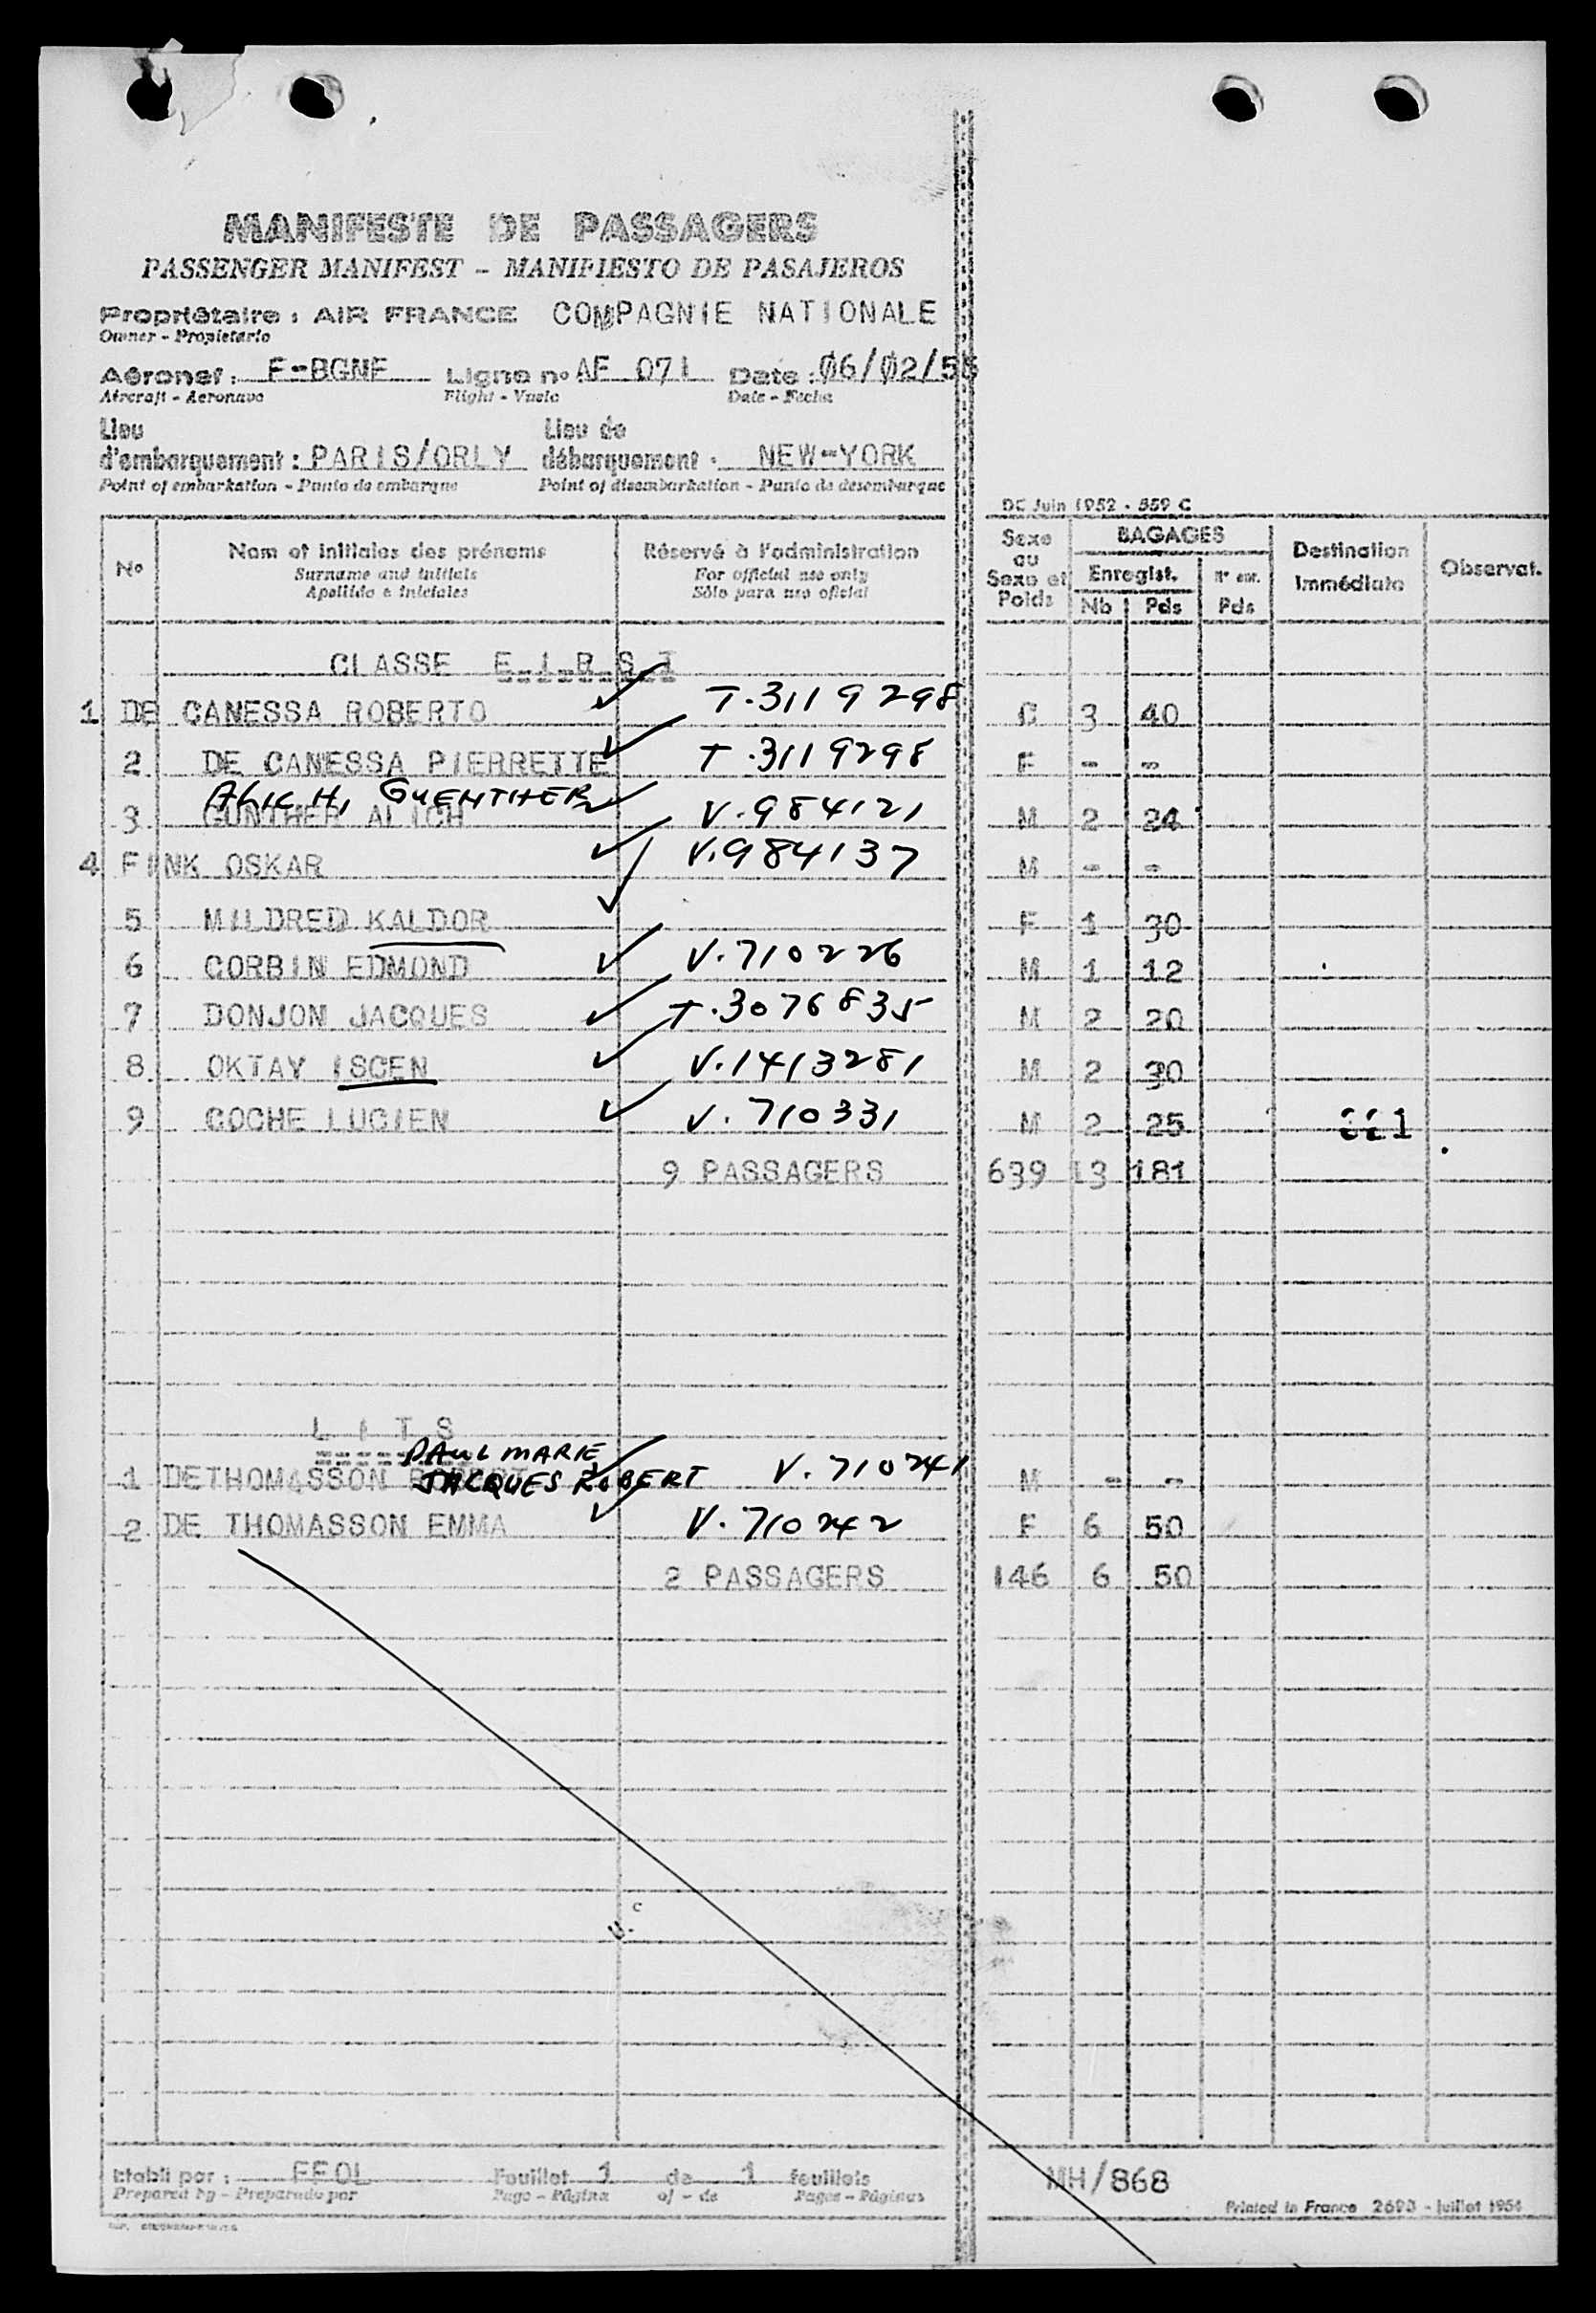 MANIFESTE DE PASSAGERS
PASSENGER MANIFEST - MANIFIESTO DE PASAJEROS
Propriétaire : AIR FRANCE COMPAGNIE NATIONALE
Owner - Propietario
Aéronef : F-BGNF Ligne no AF 071 Date : Ø6/Ø2/55
Aircraft - Aeronave Flight - Vuelo Date - Fecha
Lieu d'embarquement : PARIS/ORLY Lieu de débarquement : NEW-YORK
Point of embarkation - Punto de embarque Point of disembarkation - Punto de desembarque
DC Juin 1952 - 559 C
No Nom et initiales des prénoms Réservé à l'administration Sexe ou Sexe et Poids BAGAGES Destination Immédiate Observat.
Surname and initials For official use only Enregist. N° enr.
Apellido e iniciales Sólo para uso oficial Nb Pds Pds
CLASSE F-I-R-S-T
1 DE CANESSA ROBERTO T.3119298 C 3 40
2 DE CANESSA PIERRETTE T.3119298 F - -
ALICH, GUENTHER
3 GUNTHER ALICH V.984121 M 2 24
4 FINK OSKAR V.984137 M - -
5 MILDRED KALDOR F 1 30
6 CORBIN EDMOND V.710226 M 1 12
7 DONJON JACQUES T.3076835 M 2 20
8 OKTAY ISCEN V.1413281 M 2 30
9 COCHE LUCIEN V.710331 M 2 25
9 PASSAGERS 639 13 181
L I T S
PAUL MARIE
1 DETHOMASSON JACQUES ROBERT V.710241 M - -
2 DE THOMASSON EMMA V.710242 F 6 50
2 PASSAGERS 146 6 50
Etabli par : FFOL Feuillet 1 de 1 feuillets MH/868
Prepared by - Preparado por Page - Página of - de Pages - Páginas
Printed in France 2693 - Juillet 1954